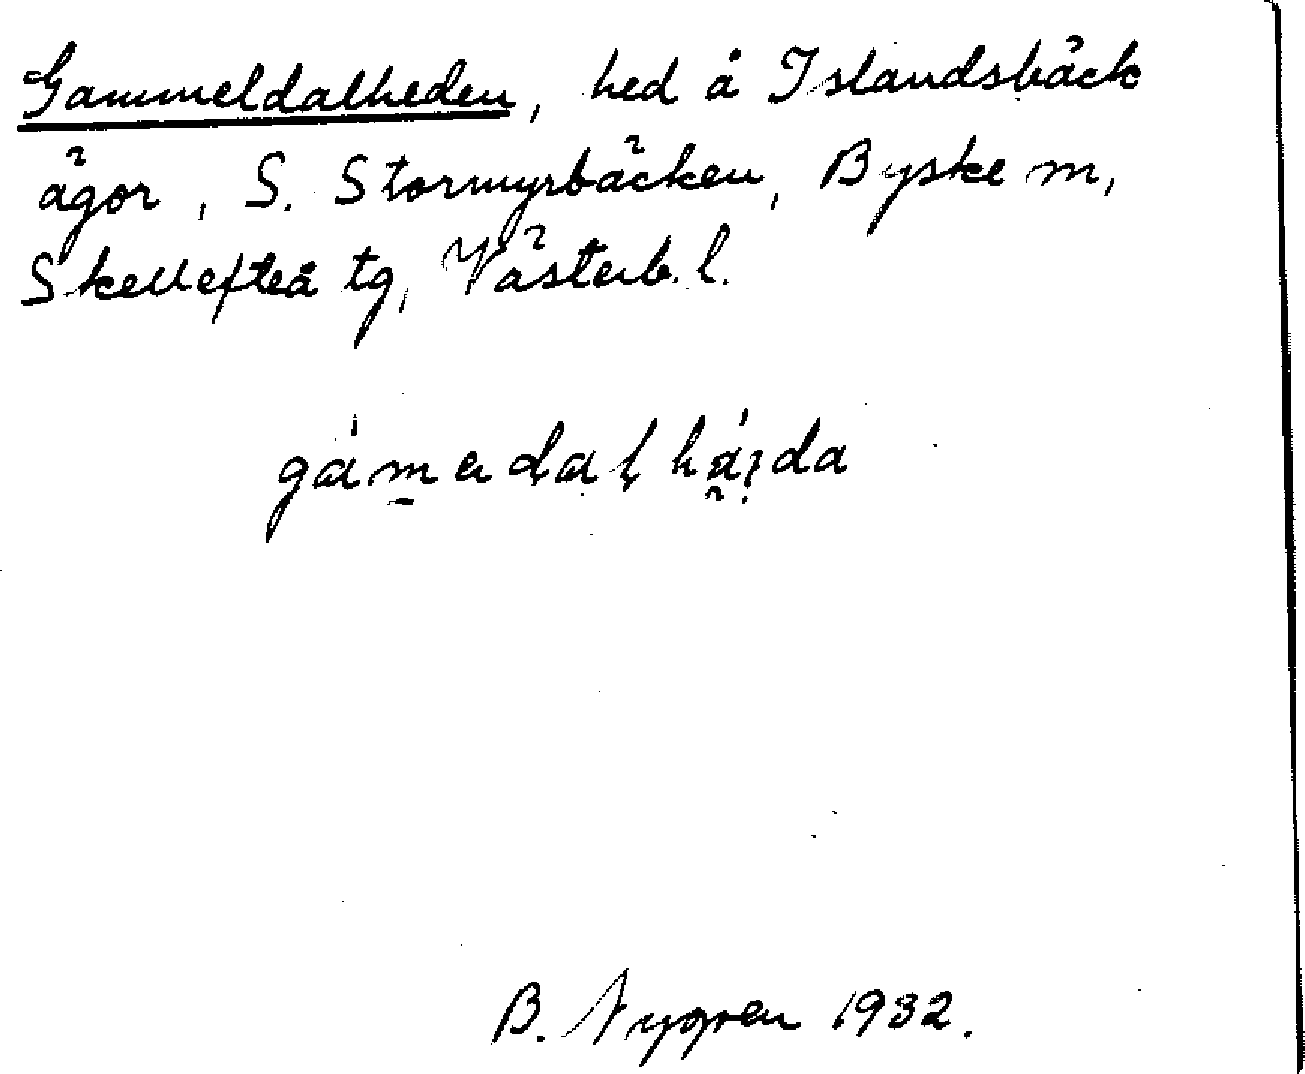 Gammeldalheden, hed å Islandsbäck
ägor, S. Stormyrbäcken, Byske sn,
Skellefteå tg, Västerb. l.
B. Nygren 1932.